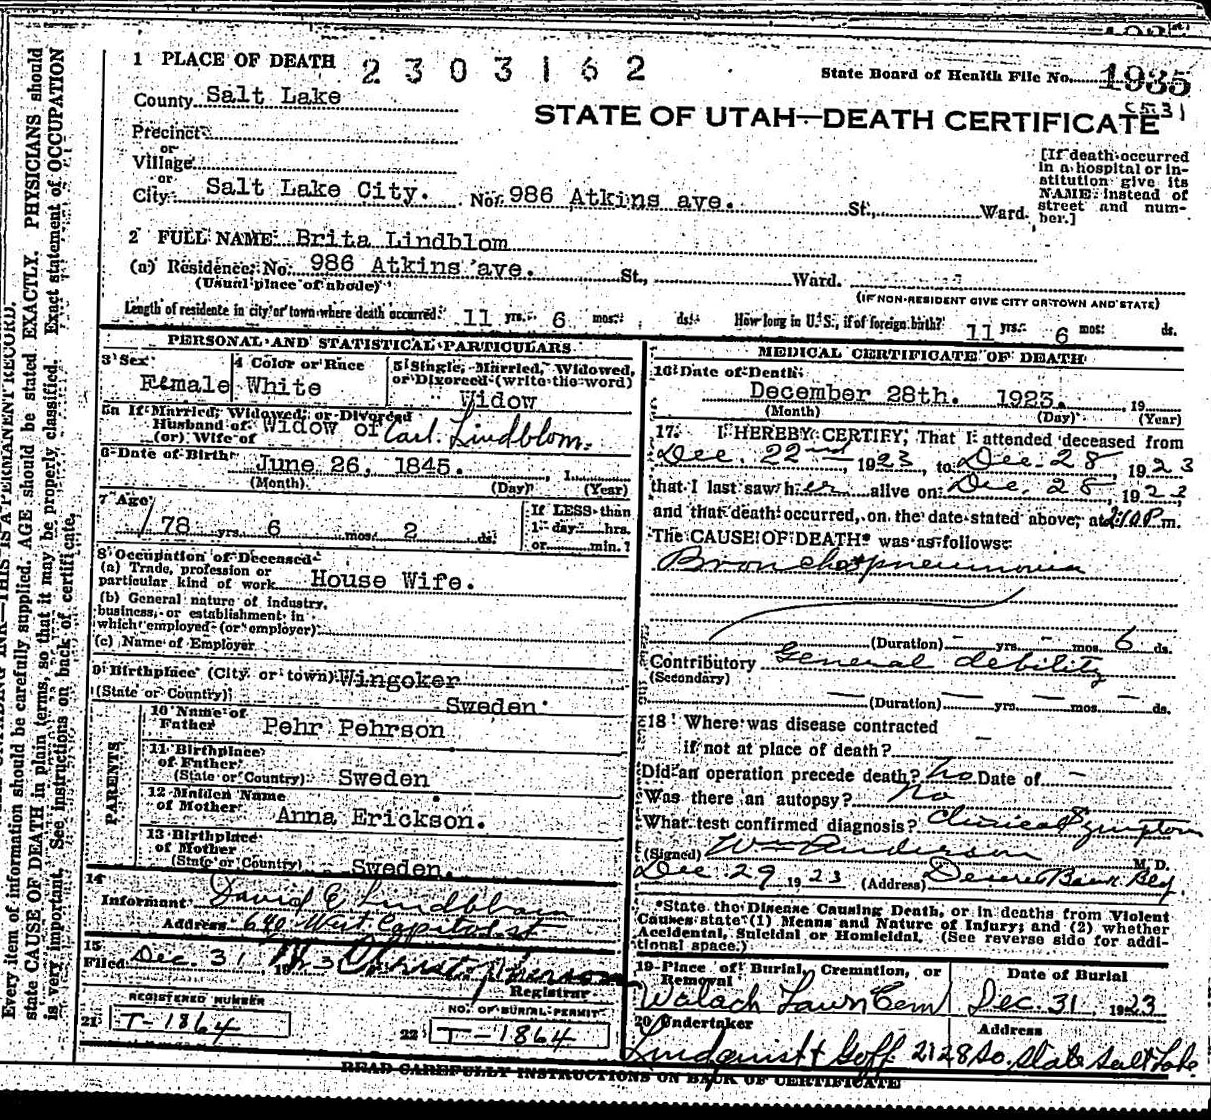 1 PLACE OF DEATH 2303162
State Board of Health File No. 1935
County Salt Lake
C531
STATE OF UTAH—DEATH CERTIFICATE
Precinct
or
Village
or
City Salt Lake City. No. 986 Atkins ave. St., Ward.
[If death occurred
in a hospital or in-
stitution give its
NAME instead of
street and num-
ber.]
2 FULL NAME Brita Lindblom
(a) Residence, No. 986 Atkins ave. St., Ward.
(Usual place of abode)
(IF NON-RESIDENT GIVE CITY OR TOWN AND STATE)
Length of residente in city or town where death occurred 11 yrs. 6 mos. ds. How long in U. S., if of foreign birth? 11 yrs. 6 mos. ds.
PERSONAL AND STATISTICAL PARTICULARS
3 Sex
Female
4 Color or Race
White
5 Single, Married, Widowed,
or Divorced (write the word)
Widow
5a If Married, Widowed, or Divorced
Husband of
(or) Wife of
Widow of Carl. Lindblom.
6 Date of Birth
June 26, 1845. 1
(Month) (Day) (Year)
7 Age
78 yrs. 6 mos. 2 ds.
If LESS than
1 day hrs.
or min.?
8 Occupation of Deceased
(a) Trade, profession or
particular kind of work House Wife.
(b) General nature of industry,
business, or establishment in
which employed (or employer)
(c) Name of Employer
9 Birthplace (City or town) Wingoker
(State or Country) Sweden
PARENTS
10 Name of
Father Pehr Pehrson
11 Birthplace
of Father
(State or Country) Sweden
12 Maiden Name
of Mother Anna Erickson.
13 Birthplace
of Mother
(State or Country) Sweden.
14
Informant David E Lindblom
Address 640 West Capitol st
15
Filed Dec. 31 1923
Registrar
REGISTERED NUMBER
21 T-1864
NO. OF BURIAL PERMIT
22 T-1864
MEDICAL CERTIFICATE OF DEATH
16 Date of Death
December 28th. 1923. 19
(Month) (Day) (Year)
17. I HEREBY CERTIFY, That I attended deceased from
Dec. 22nd, 1923, to Dec. 28, 1923
that I last saw her alive on Dec. 28, 1923
and that death occurred, on the date stated above, at m.
The CAUSE OF DEATH* was as follows:
Bronchopneumonia
(Duration) — yrs. — mos. 6 ds.
Contributory General debility
(Secondary)
(Duration) — yrs. — mos. — ds.
18 Where was disease contracted
if not at place of death? —
Did an operation precede death? No Date of —
Was there an autopsy? No
What test confirmed diagnosis? Clinical Symptoms
(Signed) Wm Anderson M. D.
Dec 29 1923 (Address) Deseret Bank Bldg.
*State the Disease Causing Death, or in deaths from Violent
Causes state (1) Means and Nature of Injury; and (2) whether
Accidental, Suicidal or Homicidal. (See reverse side for addi-
tional space.)
19 Place of Burial, Cremation, or
Removal
Date of Burial
Wasach Lawn Cem Dec. 31, 1923
20 Undertaker
Address
Lindquist & Goff. 2128 So. State Salt Lake
READ CAREFULLY INSTRUCTIONS ON BACK OF CERTIFICATE
THIS IS A PERMANENT RECORD.
Every item of information should be carefully supplied. AGE should be stated EXACTLY. PHYSICIANS should
state CAUSE OF DEATH in plain terms, so that it may be properly classified. Exact statement of OCCUPATION
is very important. See instructions on back of certificate.